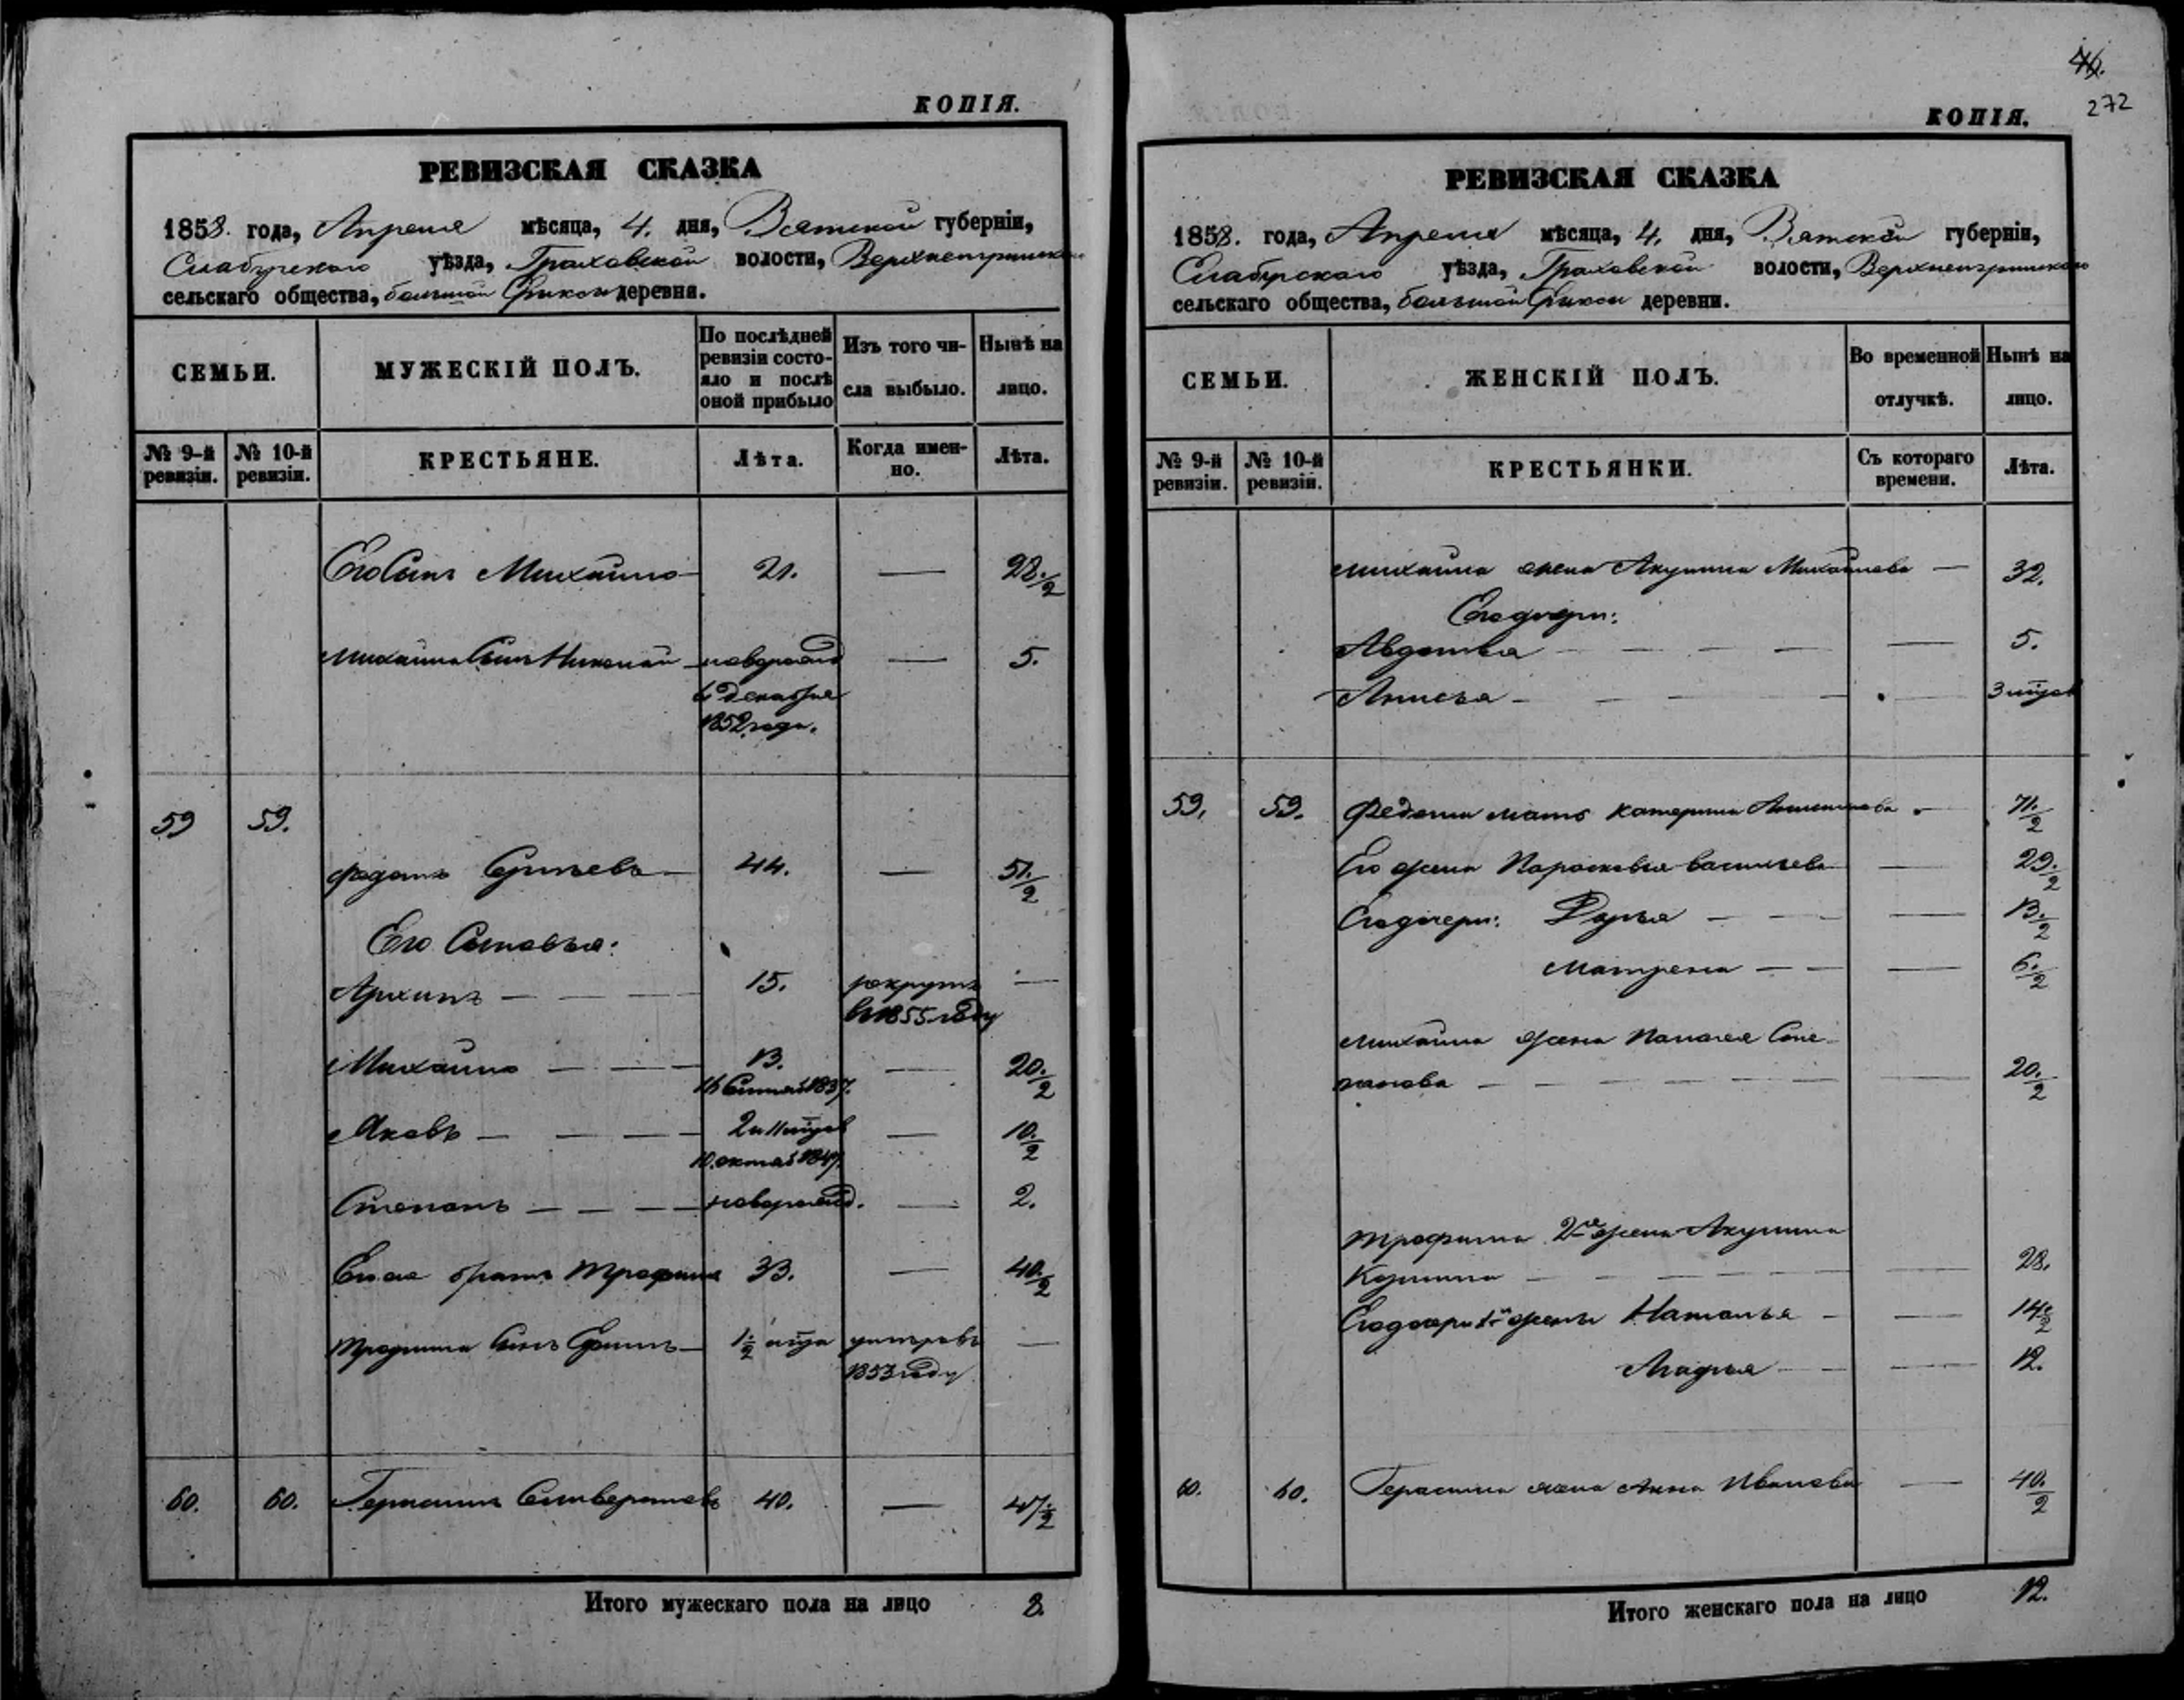 КОПІЯ.
РЕВИЗСКАЯ СКАЗКА
1858. года, Апреля мѣсяца, 4. дня, Вятской губерніи,
Елабугскаго уѣзда, Граховской волости,
сельскаго общества, большой деревня.
СЕМЬИ.
МУЖЕСКІЙ ПОЛЪ.
По послѣдней ревизіи состояло и послѣ оной прибыло
Изъ того числа выбыло.
Нынѣ на лицо.
№ 9-й ревизіи.
№ 10-й ревизіи.
КРЕСТЬЯНЕ.
Лѣта.
Когда именно.
Лѣта.
Его Сынъ Михайло 21. — 28 1/2
Михайла Сынъ Николай — новорожд — 5.
6 Декабря
1852 года.
59 59.
Федотъ 44. — 51 1/2
Его Сыновья:
Архипъ — — — 15. рекрутъ —
в 1855 году
Михайло — — — 13. — 20 1/2
16 1837.
Яковъ — — — 2 и 11 — 10 1/2
10. 1847.
Степанъ — — — новорожд. — 2.
братъ Трофимъ 33. — 40 1/2
Трофима Сынъ Ефимъ — 1/2 умеръ въ —
1853 году
60. 60. Селиверстовъ 40. — 47 1/2
Итого мужескаго пола на лицо 8.
46.
272
КОПІЯ.
РЕВИЗСКАЯ СКАЗКА
1858. года, Апреля мѣсяца, 4. дня, Вятской губерніи,
Елабугскаго уѣзда, Граховской волости,
сельскаго общества, большой деревни.
СЕМЬИ.
ЖЕНСКІЙ ПОЛЪ.
Во временной отлучкѣ.
Нынѣ на лицо.
№ 9-й ревизіи.
№ 10-й ревизіи.
КРЕСТЬЯНКИ.
Съ котораго времени.
Лѣта.
Михайла жена Акулина Михайлова — 32.
Его дочери:
Авдотья — — — — — 5.
Анисья — — — — — 3
59. 59. Федота мать Катерина — 71 1/2
Его жена Парасковья Васильева — 29 1/2
Его дочери: Дарья — — — 13 1/2
Матрена — — — 6 1/2
Михайла жена Степанова — 20 1/2
Трофима 2я жена Акулина
Кузмина — — — — — 28.
Его дочери 1й жены Наталья — — 14 1/2
Агафья — — 12.
60. 60. Герасима жена Анна Иванова — 40 1/2
Итого женскаго пола на лицо 12.